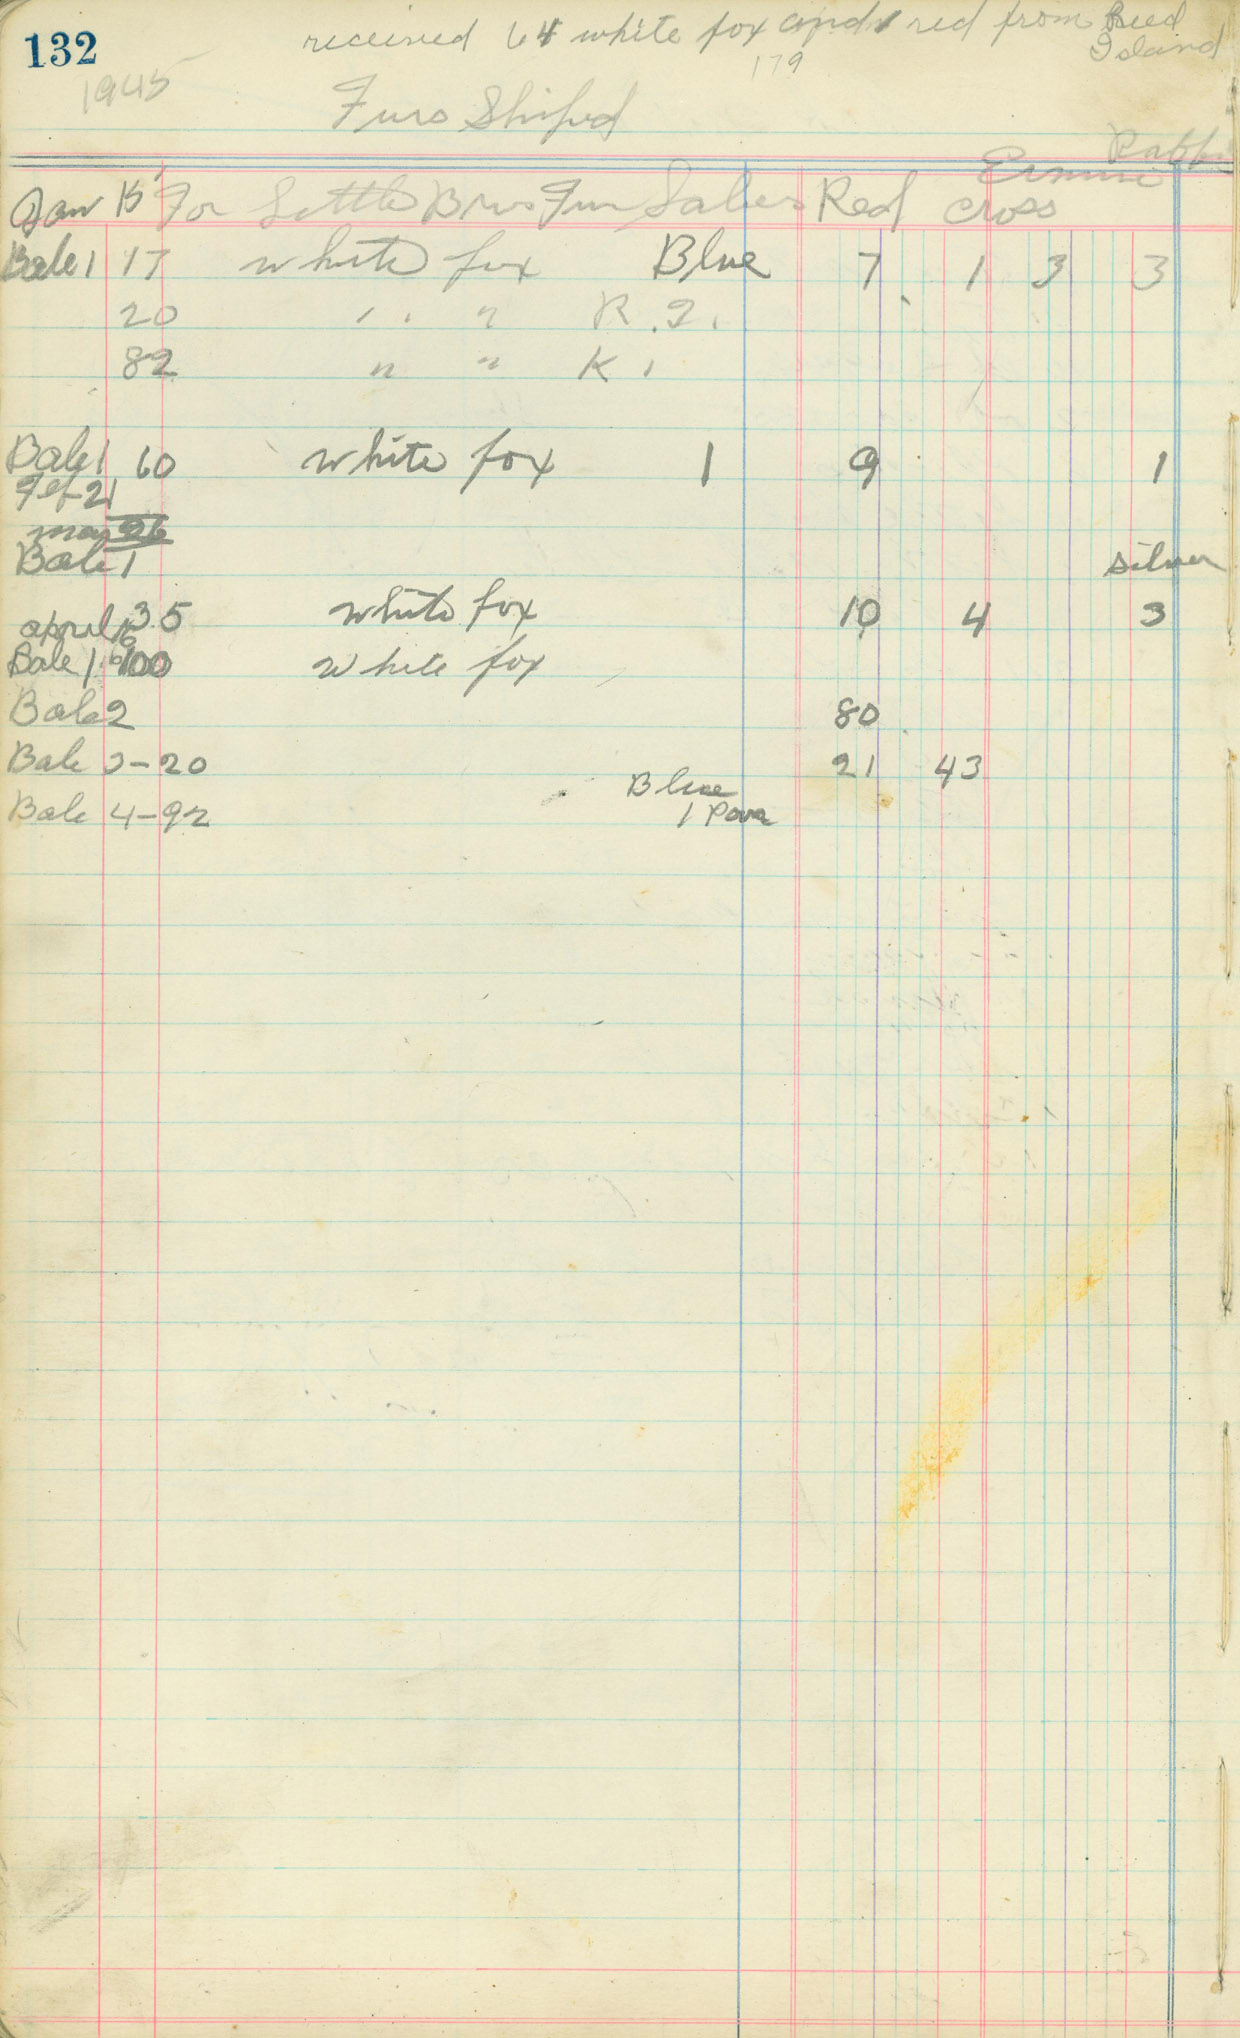 132
received 64 white fox and 1 red from Reed
Island
179
1945
Furs Shiped
Ermine
Jan 15 For Little Bros Fur Sales Red cross
Bale 1 17 white fox Blue 7 1 3 3
20 " " " R.I.
82 " " K.
Bale 1 60 white fox 1 9 1
Feb 21
may 26
Bale 1 silver
35 white fox 10 4 3
april 16
Bale 1 100 white fox
Bale 2 80
Bale 3-20 21 43
Blue
Bale 4-92 1